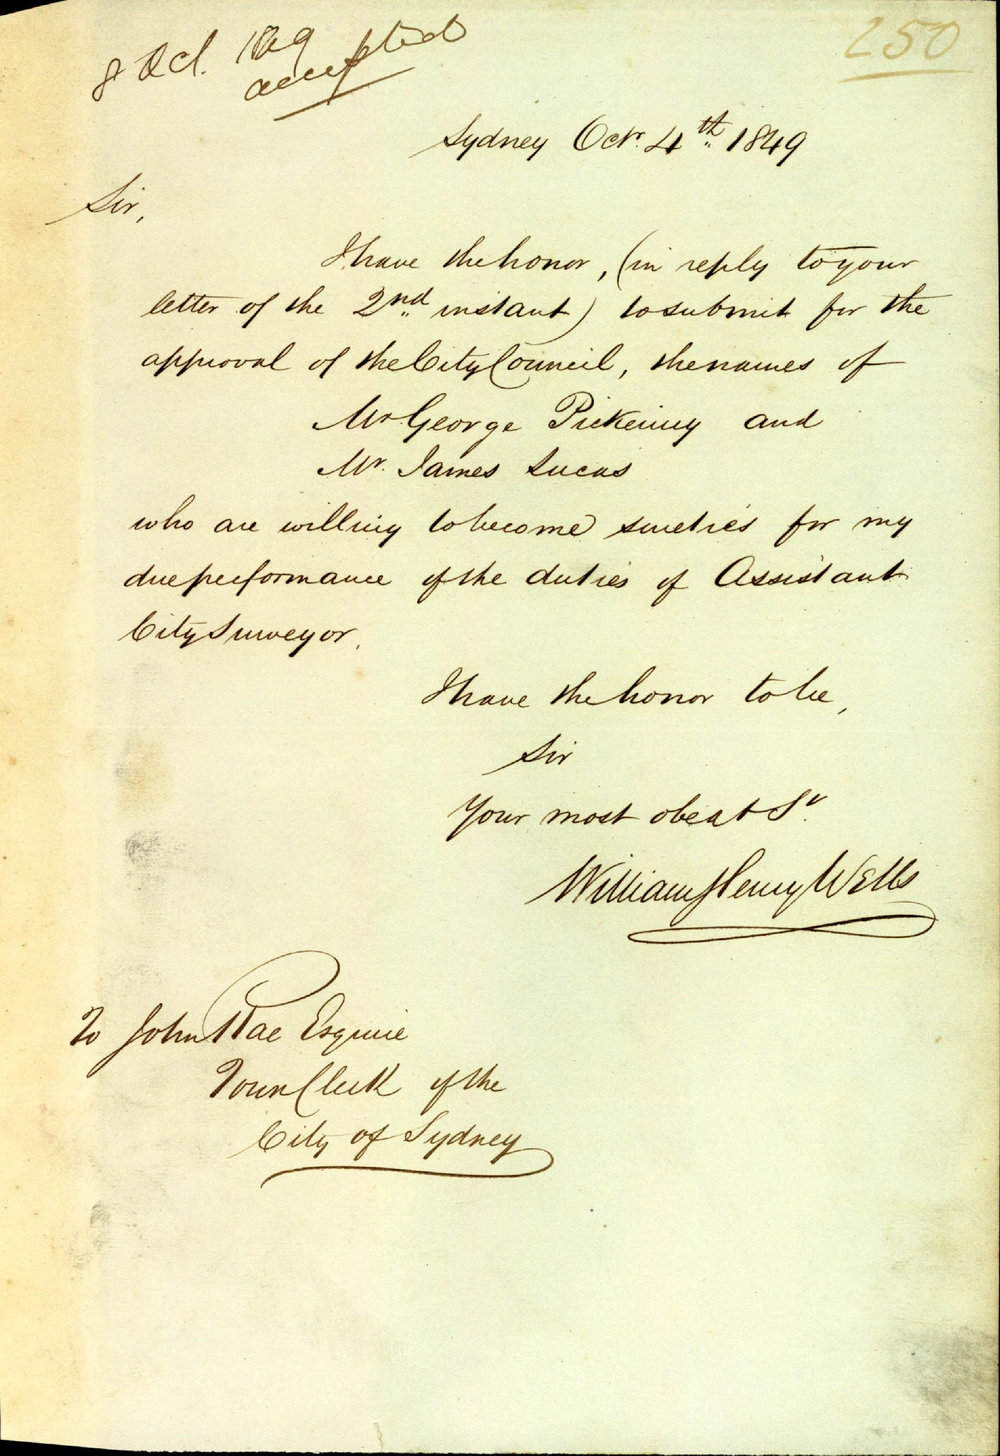 8 Oct. 1849
accepted
250
Sydney Octr. 4th. 1849
Sir,
I have the honor, (in reply to your
letter of the 2nd. instant) to submit for the
approval of the City Council, the names of
Mr. George Pickering and
Mr. James Lucas
who are willing to become sureties for my
due performance of the duties of Assistant
City Surveyor.
I have the honor to be,
Sir
Your most obedt Sr.
William Henry Wells
To John Rae Esquire
Town Clerk of the
City of Sydney